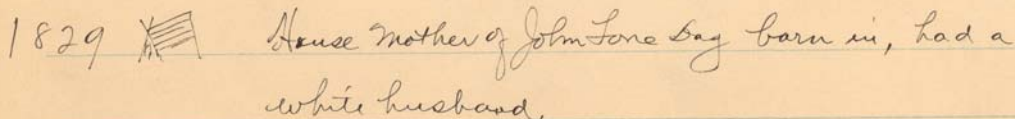 1829 House Mother of John Lone Dog born in, had a
white husband.